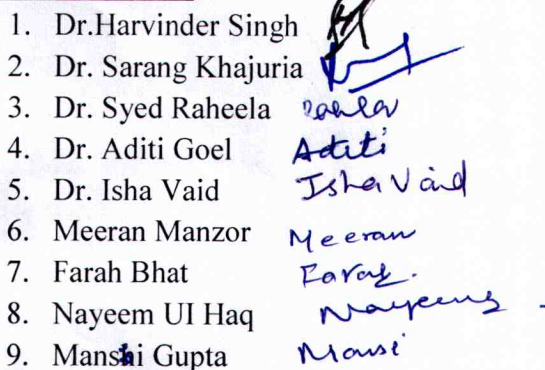 1. Dr.Harvinder Singh
2. Dr. Sarang Khajuria
3. Dr. Syed Raheela
4. Dr. Aditi Goel Aditi
5. Dr. Isha Vaid Isha Vaid
6. Meeran Manzor Meeran
7. Farah Bhat
8. Nayeem UI Haq
9. Manshi Gupta Mansi